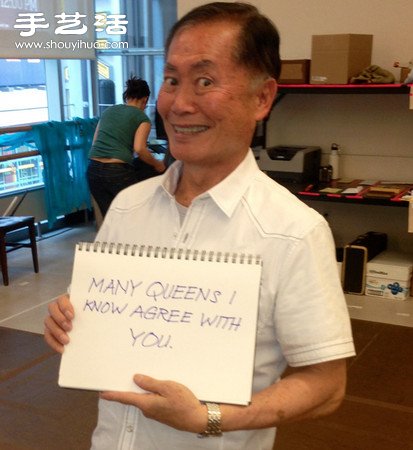 12:00 PM
手艺活
www.shouyihuo.com
MANY QUEENS I
KNOW AGREE WITH
YOU.